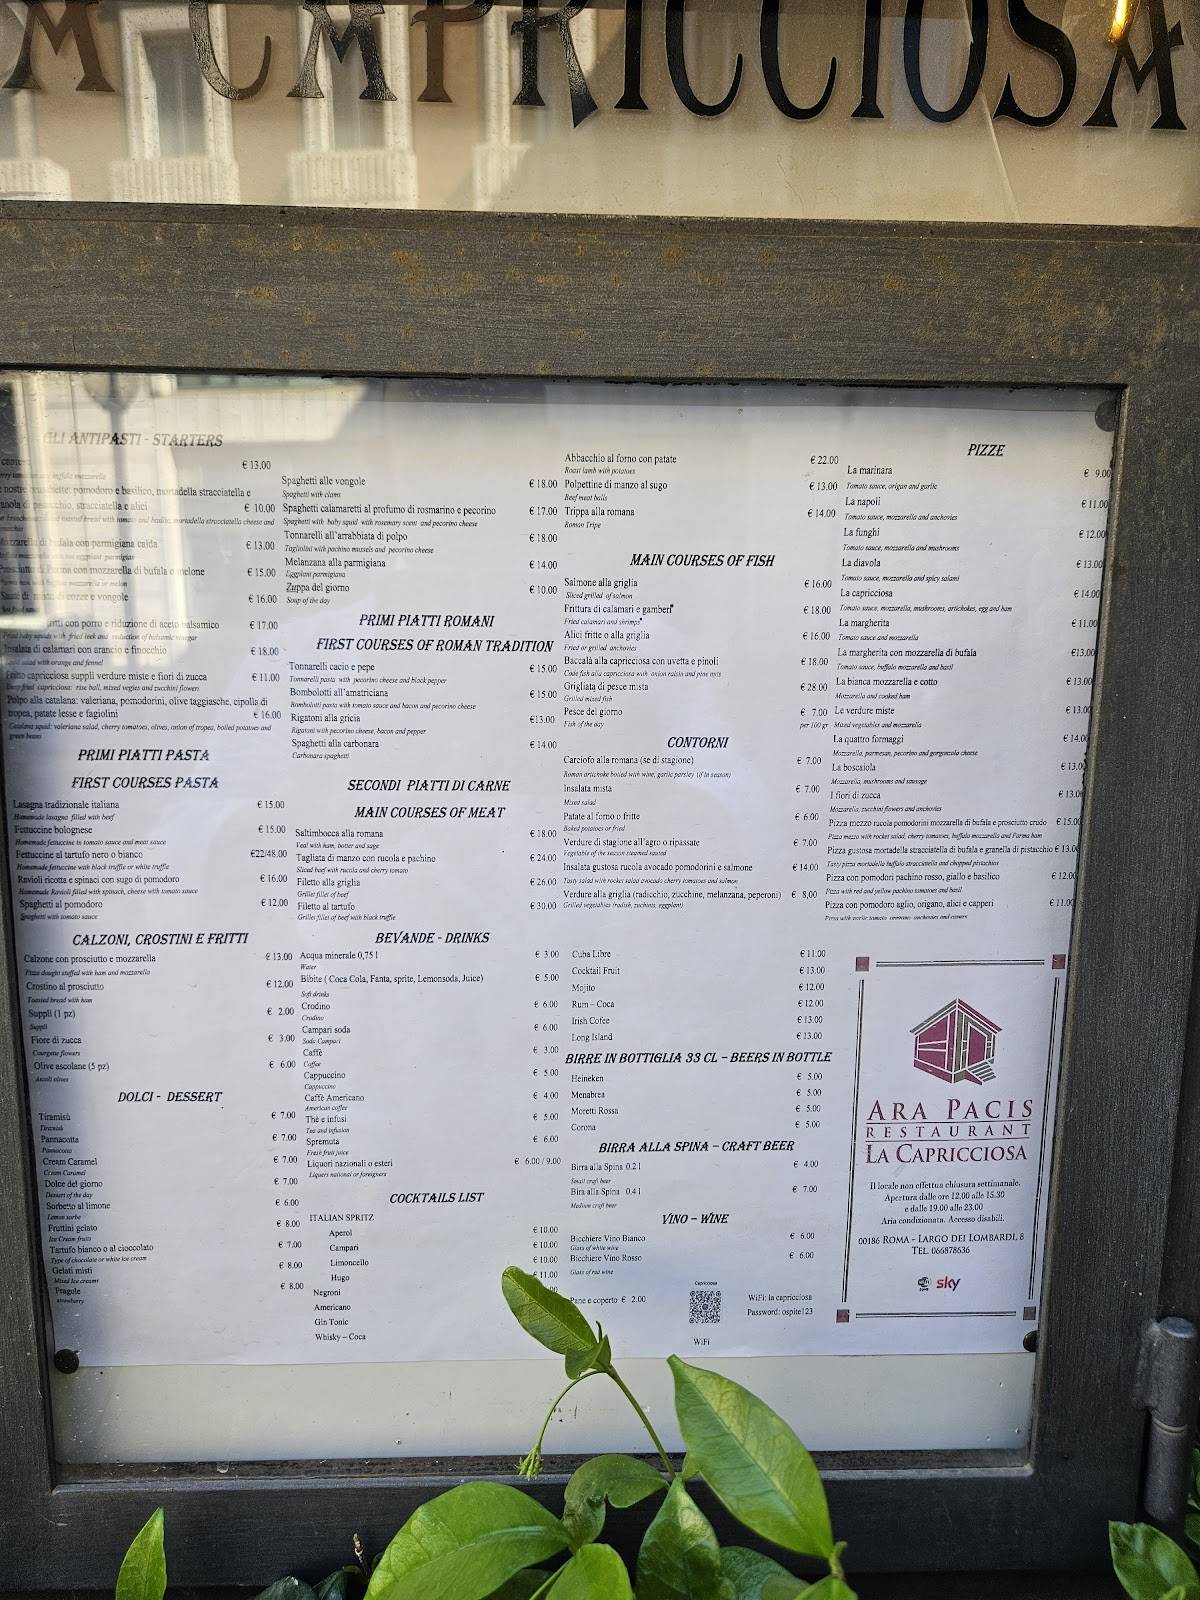 CAPRICCIOSA
GLI ANTIPASTI - STARTERS
€ 13.00
nostre bruschette: pomodoro e basilico, mortadella stracciatella e
stracciatella e alici € 10.00
con parmigiana calda € 13.00
Prosciutto di Parma con mozzarella di bufala o melone € 15.00
cozze e vongole € 16.00
con porro e riduzione di aceto balsamico € 17.00
Insalata di calamari con arancio e finocchio € 18.00
salad with orange and fennel
Fritto capricciosa supplì verdure miste e fiori di zucca € 11.00
capricciosa: rise ball, mixed vegies and zucchini flowers
Polpo alla catalana: valeriana, pomodorini, olive taggiasche, cipolla di
tropea, patate lesse e fagiolini € 16.00
Catalana squid: valeriana salad, cherry tomatoes, olives, onion of tropea, boiled potatoes and
green beans
PRIMI PIATTI PASTA
FIRST COURSES PASTA
Lasagna tradizionale italiana € 15.00
Homemade lasagna filled with beef
Fettuccine bolognese € 15.00
Homemade fettuccine in tomato sauce and meat sauce
Fettuccine al tartufo nero o bianco €22/48.00
Homemade fettuccine with black truffle or white truffle
Ravioli ricotta e spinaci con sugo di pomodoro € 16.00
Homemade Ravioli filled with spinach, cheese with tomato sauce
Spaghetti al pomodoro € 12.00
Spaghetti with tomato sauce
CALZONI, CROSTINI E FRITTI
Calzone con prosciutto e mozzarella € 13.00
Pizza dough stuffed with ham and mozzarella
Crostino al prosciutto € 12.00
Toasted bread with ham
Supplì (1 pz) € 2.00
Supplì
Fiore di zucca € 3.00
Courgette flowers
Olive ascolane (5 pz) € 6.00
Ascoli olives
DOLCI - DESSERT
Tiramisù € 7.00
Tiramisù
Pannacotta € 7.00
Pannacotta
Cream Caramel € 7.00
Cream Caramel
Dolce del giorno € 7.00
Dessert of the day
Sorbetto al limone € 6.00
Lemon sorbe
Fruttini gelato € 8.00
Ice Cream fruits
Tartufo bianco o al cioccolato € 7.00
Type of chocolate or white ice cream
Gelati misti € 8.00
Mixed Ice creams
Fragole € 8.00
strawberry
Spaghetti alle vongole € 18.00
Spaghetti with clams
Spaghetti calamaretti al profumo di rosmarino e pecorino € 17.00
Spaghetti with baby squid with rosemary scent and pecorino cheese
Tonnarelli all'arrabbiata di polpo € 18.00
Tagliolini with pachino mussels and pecorino cheese
Melanzana alla parmigiana € 14.00
Eggplant parmigiana
Zuppa del giorno € 10.00
Soup of the day
PRIMI PIATTI ROMANI
FIRST COURSES OF ROMAN TRADITION
Tonnarelli cacio e pepe € 15.00
Tonnarelli pasta with pecorino cheese and black pepper
Bombolotti all'amatriciana € 15.00
Bombolotti pasta with tomato sauce and bacon and pecorino cheese
Rigatoni alla gricia €13.00
Rigatoni with pecorino cheese, bacon and pepper
Spaghetti alla carbonara € 14.00
Carbonara spaghetti
SECONDI PIATTI DI CARNE
MAIN COURSES OF MEAT
Saltimbocca alla romana € 18.00
Veal with ham, butter and sage
Tagliata di manzo con rucola e pachino € 24.00
Sliced beef with rucola and cherry tomato
Filetto alla griglia € 26.00
Grilled fillet of beef
Filetto al tartufo € 30.00
Grilled fillet of beef with black truffle
BEVANDE - DRINKS
Acqua minerale 0,75 l € 3.00
Water
Bibite ( Coca Cola, Fanta, sprite, Lemonsoda, Juice) € 5.00
Soft drinks
Crodino € 6.00
Crodino
Campari soda € 6.00
Soda Campari
Caffè € 3.00
Coffee
Cappuccino € 5.00
Cappuccino
Caffè Americano € 4.00
American coffee
Thè e infusi € 5.00
Tea and infusion
Spremuta € 6.00
Fresh fruit juice
Liquori nazionali o esteri € 6.00 / 9.00
Liquers national or foreigners
COCKTAILS LIST
ITALIAN SPRITZ
Aperol € 10.00
Campari € 10.00
Limoncello € 10.00
Hugo € 11.00
Negroni
Americano
Gin Tonic
Whisky – Coca
Abbacchio al forno con patate € 22.00
Roast lamb with potatoes
Polpettine di manzo al sugo € 13.00
Beef meat balls
Trippa alla romana € 14.00
Roman Tripe
MAIN COURSES OF FISH
Salmone alla griglia € 16.00
Sliced grilled of salmon
Frittura di calamari e gamberi* € 18.00
Fried calamari and shrimps*
Alici fritte o alla griglia € 16.00
Fried or grilled anchovies
Baccalà alla capricciosa con uvetta e pinoli € 18.00
Code fish alla capricciosa with onion raisin and pine nuts
Grigliata di pesce mista € 28.00
Grilled mixed fish
Pesce del giorno € 7.00
Fish of the day per 100 gr
CONTORNI
Carciofo alla romana (se di stagione) € 7.00
Roman artichoke boiled with wine, garlic parsley (if in season)
Insalata mista € 7.00
Mixed salad
Patate al forno o fritte € 6.00
Baked potatoes or fried
Verdure di stagione all'agro o ripassate € 7.00
Vegetable of the season steamed sauted
Insalata gustosa rucola avocado pomodorini e salmone € 14.00
Tasty salad with rocket salad avocado cherry tomatoes and salmon
Verdure alla griglia (radicchio, zucchine, melanzana, peperoni) € 8,00
Grilled vegetables (radish, zuchinis, eggplant)
Cuba Libre € 11.00
Cocktail Fruit € 13.00
Mojito € 12.00
Rum – Coca € 12.00
Irish Cofee € 13.00
Long Island € 13.00
BIRRE IN BOTTIGLIA 33 CL – BEERS IN BOTTLE
Heineken € 5.00
Menabrea € 5.00
Moretti Rossa € 5.00
Corona € 5.00
BIRRA ALLA SPINA – CRAFT BEER
Birra alla Spina 0.2 l € 4.00
Small craft beer
Bira alla Spina 0.4 l € 7.00
Medium craft beer
VINO – WINE
Bicchiere Vino Bianco € 6.00
Glass of white wine
Bicchiere Vino Rosso € 6.00
Glass of red wine
Pane e coperto € 2.00
Capricciosa
WiFi
WiFi: la capricciosa
Password: ospite123
PIZZE
La marinara € 9.00
Tomato sauce, origan and garlic
La napoli € 11.00
Tomato sauce, mozzarella and anchovies
La funghi € 12.00
Tomato sauce, mozzarella and mushrooms
La diavola € 13.00
Tomato sauce, mozzarella and spicy salami
La capricciosa € 14.00
Tomato sauce, mozzarella, mushrooms, artichokes, egg and ham
La margherita € 11.00
Tomato sauce and mozzarella
La margherita con mozzarella di bufala €13.00
Tomato sauce, buffalo mozzarella and basil
La bianca mozzarella e cotto € 13.00
Mozzarella and cooked ham
Le verdure miste € 13.00
Mixed vegetables and mozzarella
La quattro formaggi € 14.00
Mozzarella, parmesan, pecorino and gorgonzola cheese
La boscaiola € 13.00
Mozzarella, mushrooms and sausage
I fiori di zucca € 13.00
Mozzarella, zucchini flowers and anchovies
Pizza mezzo rucola pomodorini mozzarella di bufala e prosciutto crudo € 15.00
Pizza mezzo with rocket salad, cherry tomatoes, buffalo mozzarella and Parma ham
Pizza gustosa mortadella stracciatella di bufala e granella di pistacchio € 13.00
Tasty pizza mortadella buffalo stracciatella and chopped pistachios
Pizza con pomodori pachino rosso, giallo e basilico € 12.00
Pizza with red and yellow pachino tomatoes and basil
Pizza con pomodoro aglio, origano, alici e capperi € 11.00
ARA PACIS
RESTAURANT
LA CAPRICCIOSA
Il locale non effettua chiusura settimanale.
Apertura dalle ore 12.00 alle 15.30
e dalle 19.00 alle 23.00
Aria condizionata. Accesso disabili.
00186 ROMA - LARGO DEI LOMBARDI, 8
TEL. 066878636
sky